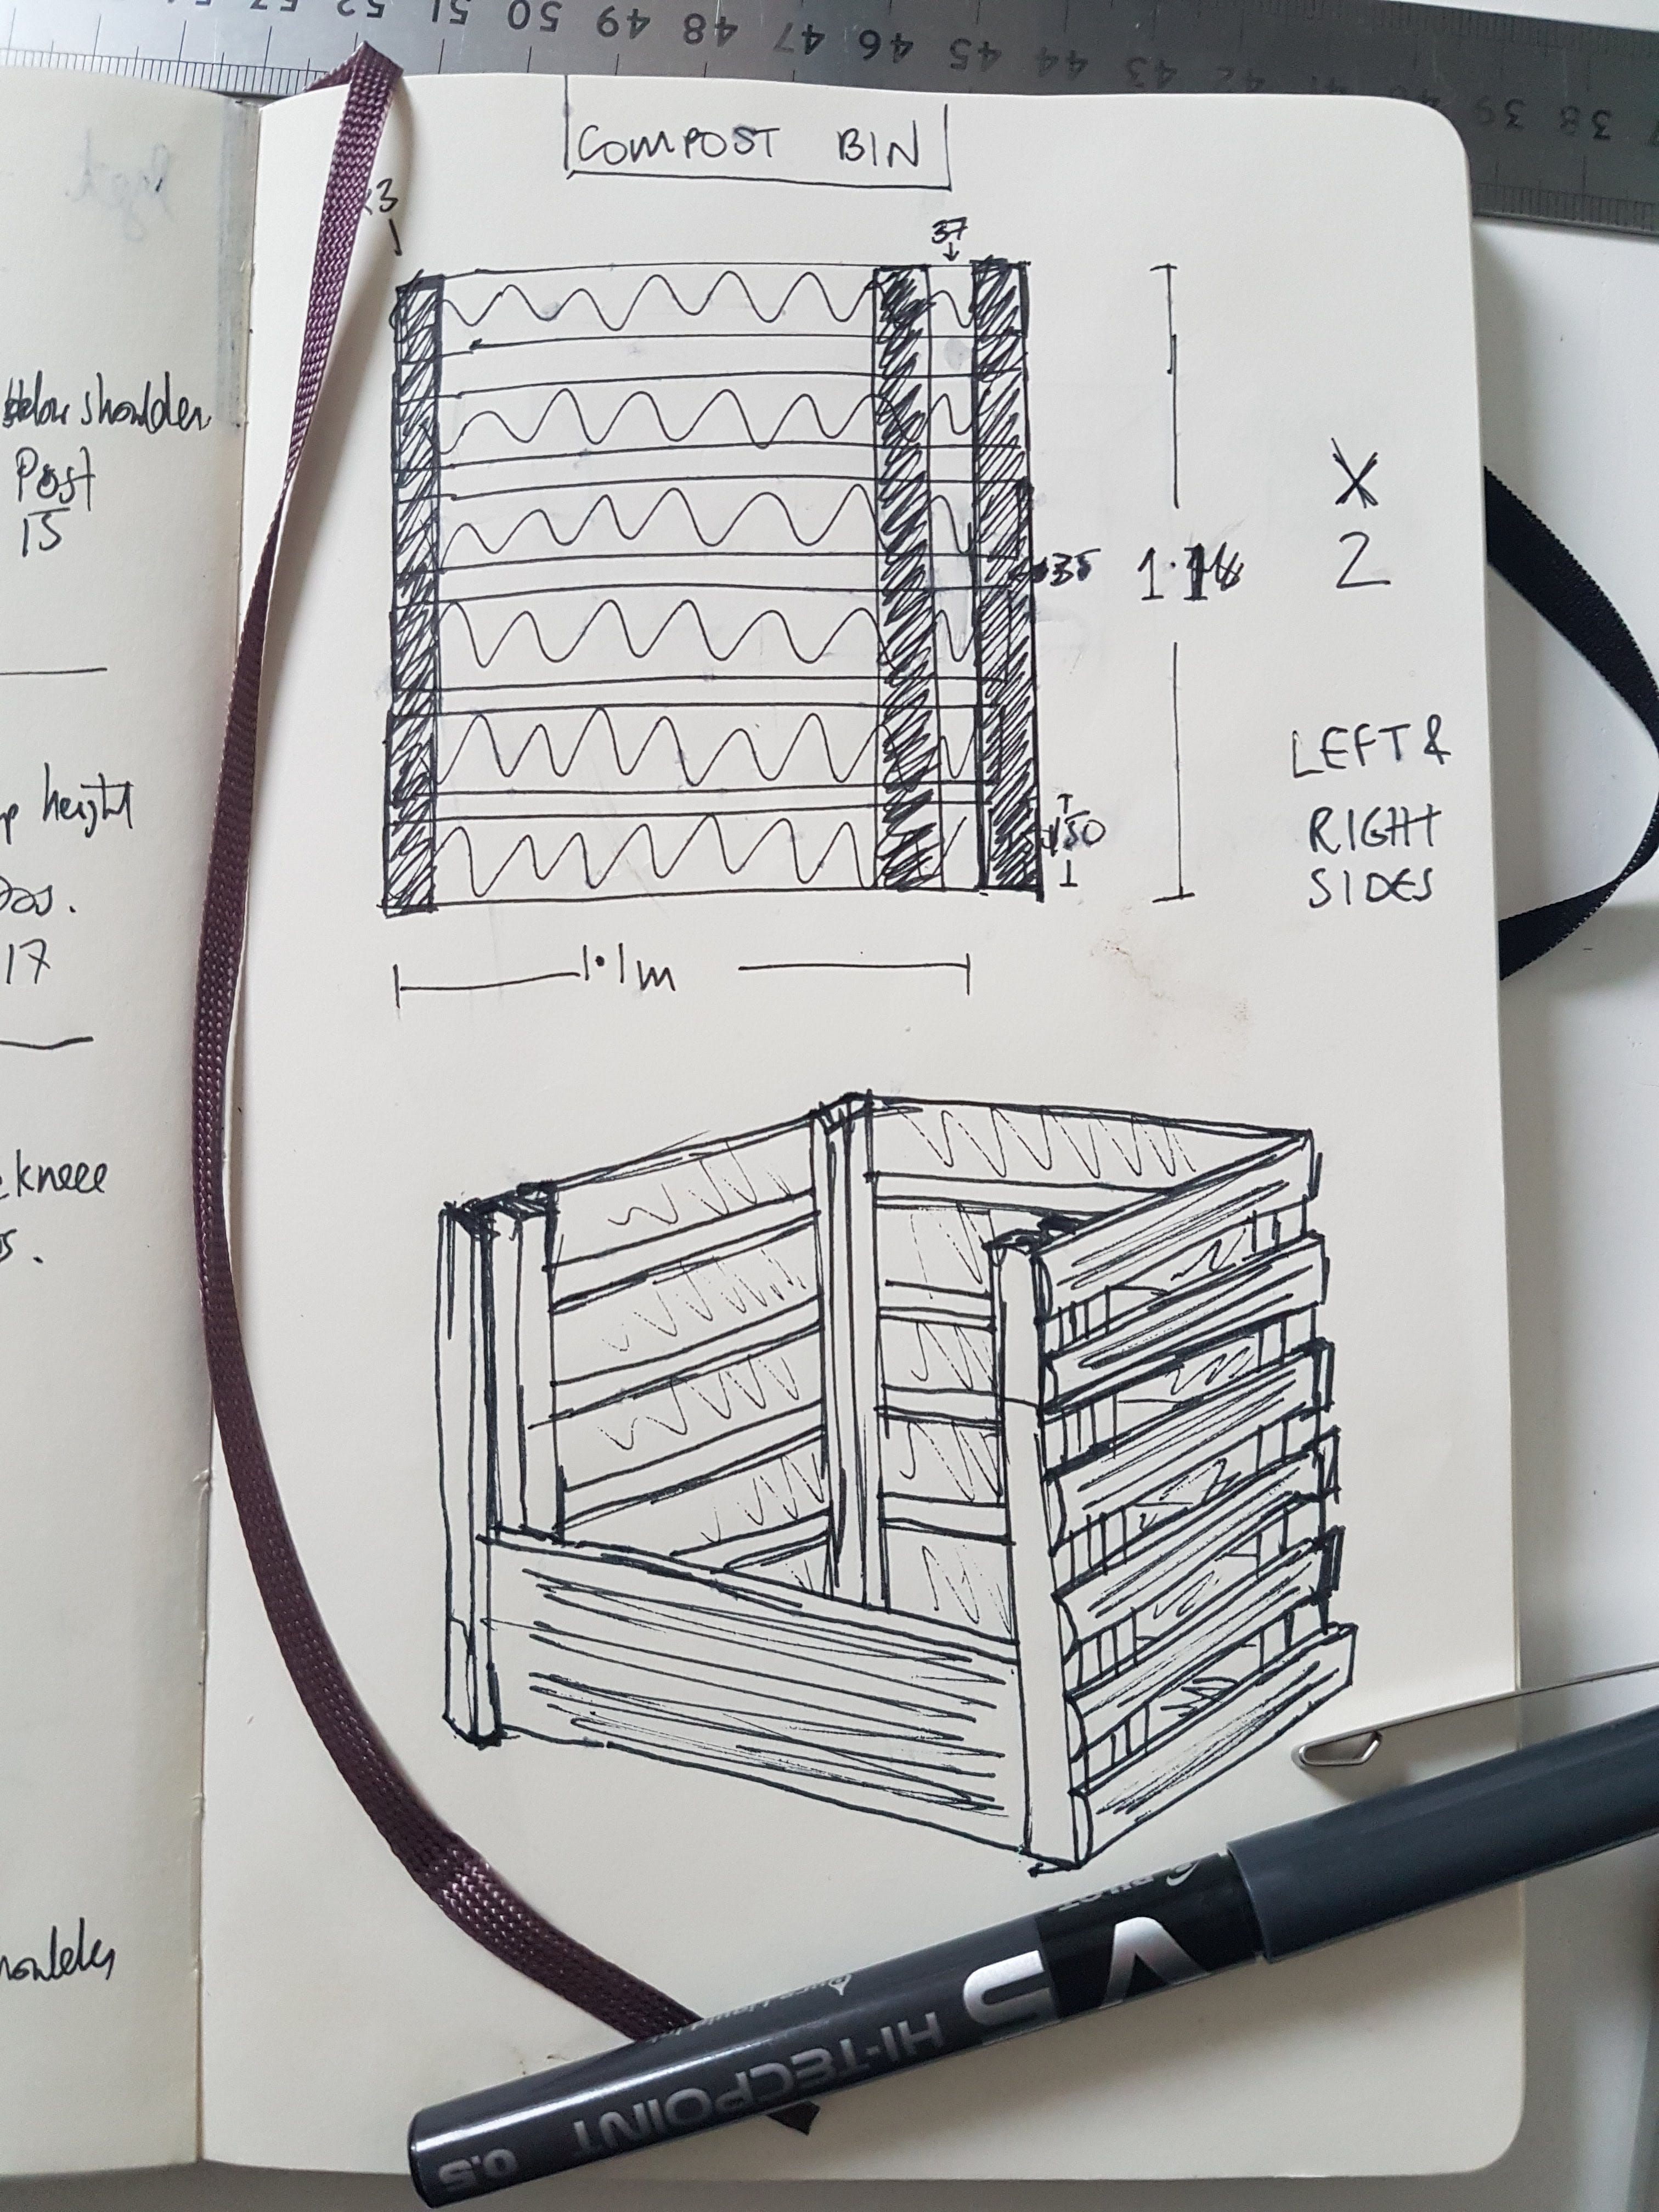 53 52 51 50 49 48 47 46 45 44 43 42 41 40 39 38
COMPOST BIN
x3
37
35
150
1.1m
X
2
LEFT &
RIGHT
SIDES
below shoulder
Post
15
height
17
kneee
PILOT
V5
HI-TECPOINT
0.5